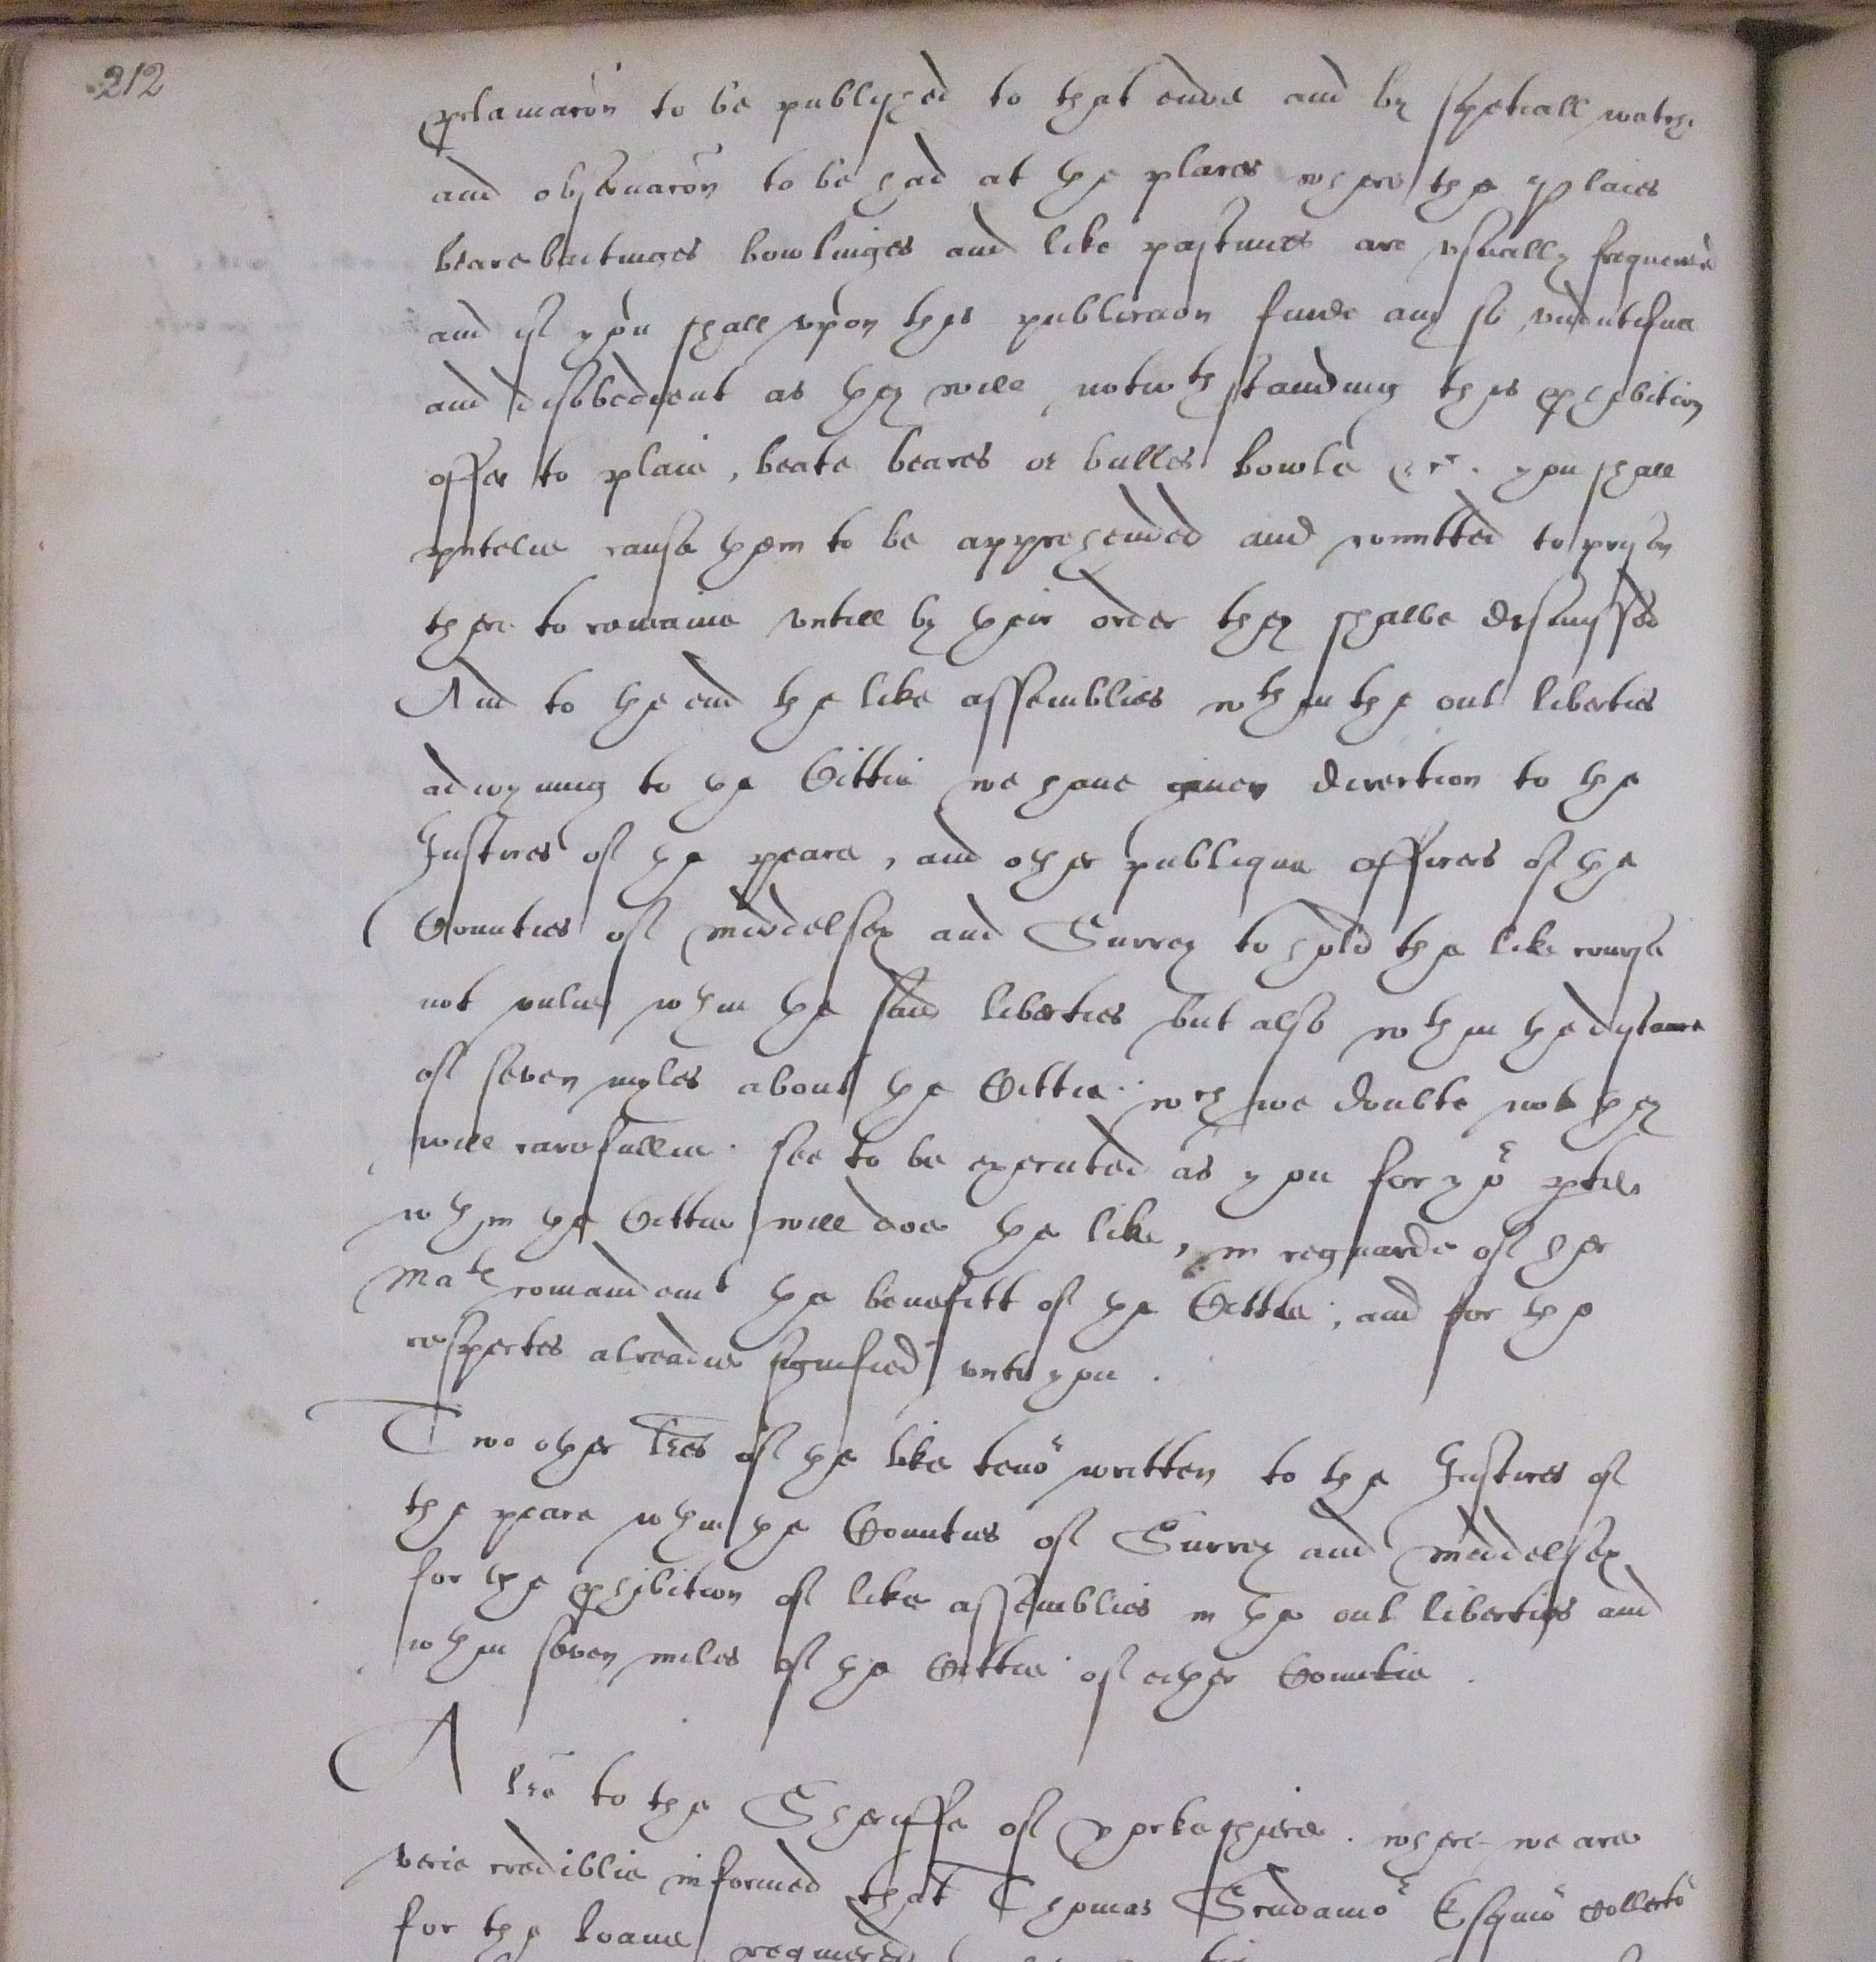 212
p̱clamacōn to be publyshed to that ende and by speciall watch
and obseruacōn to be had at the places where the plaies
bearebaitinges bowlinges and like pastimes are vsually frequented
and if you shall vpon this publicacon finde any so vndutifull
and disobedient as they will notwthstanding this p̱hibition
offer to plaie, beate beares or bulles bowle &c. you shall
pn̄telie cause them to be apprehended and comitted to pryson
there to remaine vntill by their order they shalbe dismyssed
And to the end the like assemblies wthin the out liberties
adioyning to the Cittie we haue giuen direction to the
Justices of the peace, and other publique officers of the
Counties of Middelsex and Surrey to hold the like course
not onlie wthin the said liberties but also wthin the dystance
of seven myles about the Cittie: wch we doubte not they
will carefullie see to be executed as you for yor ptes
wthin the Cittie will doe the like, in reguarde of her
Mats comaundemt the benefitt of the Cittie, and for the
respectes alreadie signified vnto you.
Two other l̄res of the like tenor written to the Justices of
the peace wthin the Counties of Surrey and Middelsex
for the p̱hibition of like assemblies in the out liberties and
wthin seven miles of the Cittie of ether Countie.
A l̄re to the Sheriffe of Yorkeshiere. where we are
verie crediblie informed that Thomas Scudamor Esquior Collector
for the loane requiered